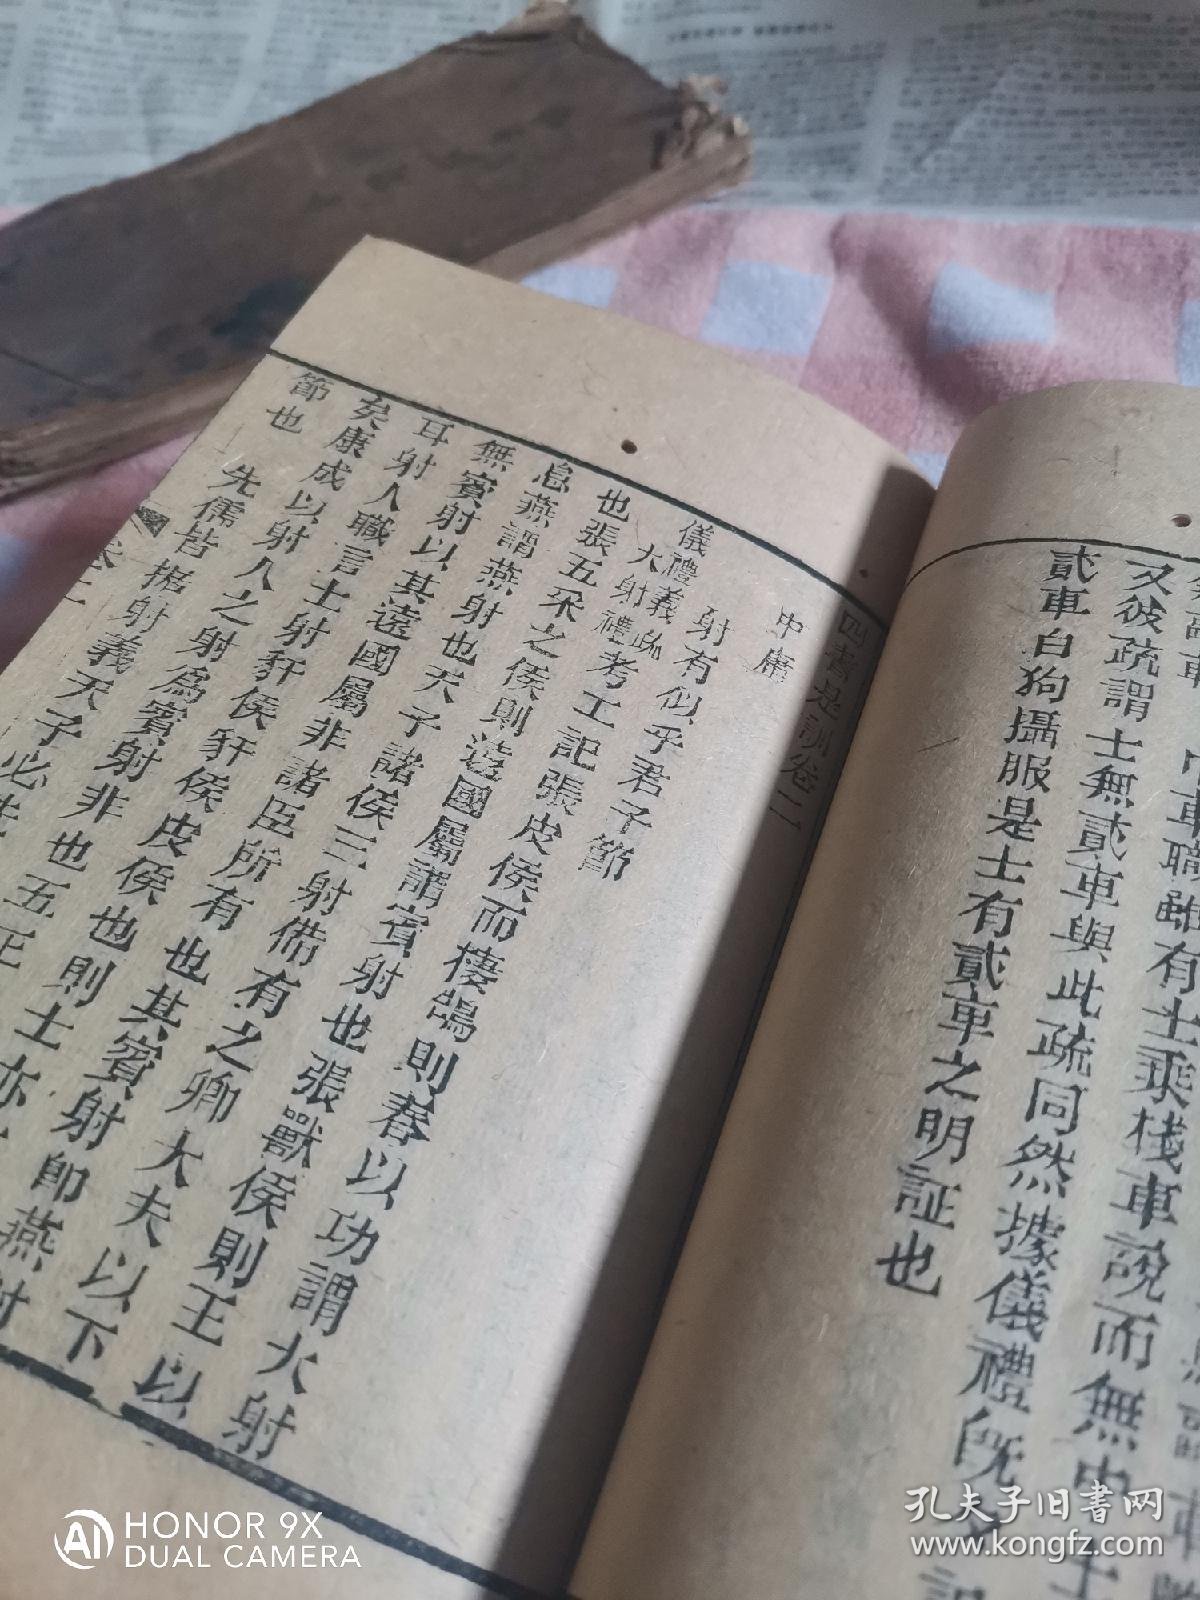 車職雖有士乘棧車說而無中士
又彼疏謂士無貳車與此疏同然據儀禮既夕記
貳車白狗攝服是士有貳車之明証也
四書是訓卷二
中庸
射有似乎君子節
儀禮義疏大射禮考工記張皮侯而棲鵠則春以功謂大射
也張五采之侯則遠國屬謂賓射也張獸侯則王以
息燕謂燕射也天子諸侯三射備有之卿大夫以下
無賓射以其遠國屬非諸臣所有也其賓射即燕射
耳射人職言士射豻侯豻侯皮侯也則士亦
矣康成以射人之射為賓射非也五正
節也
先儒皆据射義天子必先
卷二
HONOR 9X
DUAL CAMERA
孔夫子旧书网
www.kongfz.com